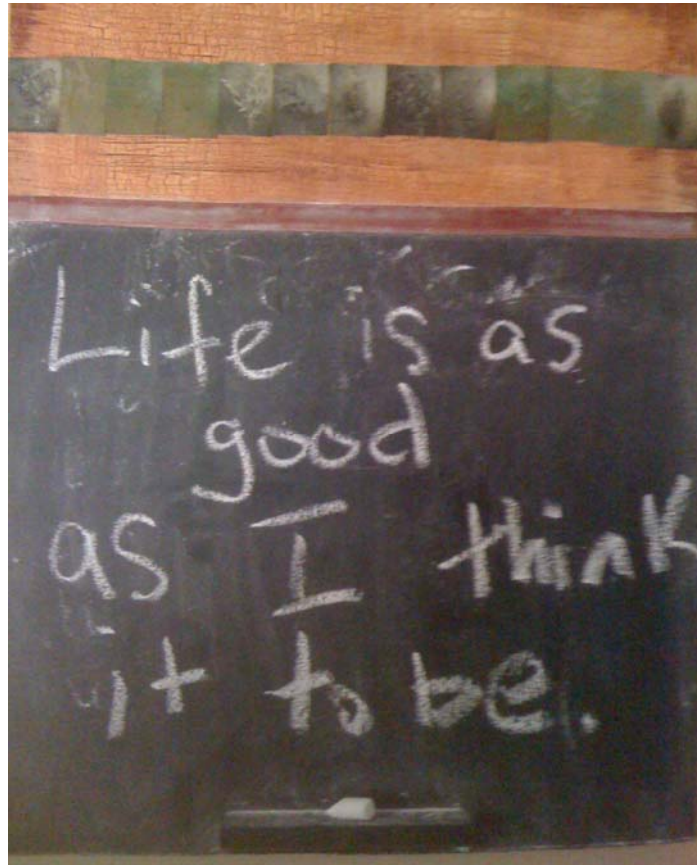 Life is as
good
as I think
it to be.